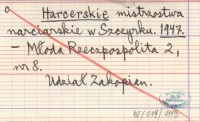 Harcerskie mistrzostwa
narciarskie w Szczyrku. 1947.
– Młoda Rzeczpospolita 2,
nr 8.
Udział Zakopian.